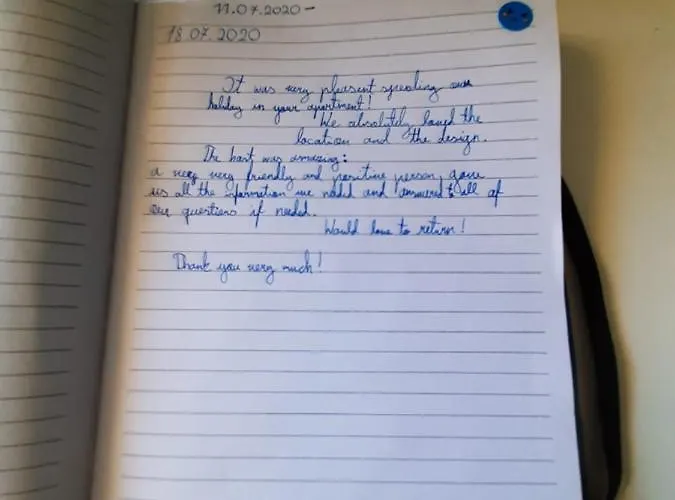 11.07.2020 -
18.07.2020
It was very pleasent spending our
holiday in your apartment!
We absolutely loved the
location and the design.
The host was amazing:
a very very friendly and positive person, gave
us all the information we needed and answered to all of
our questions if needed.
Would love to return!
Thank you very much!